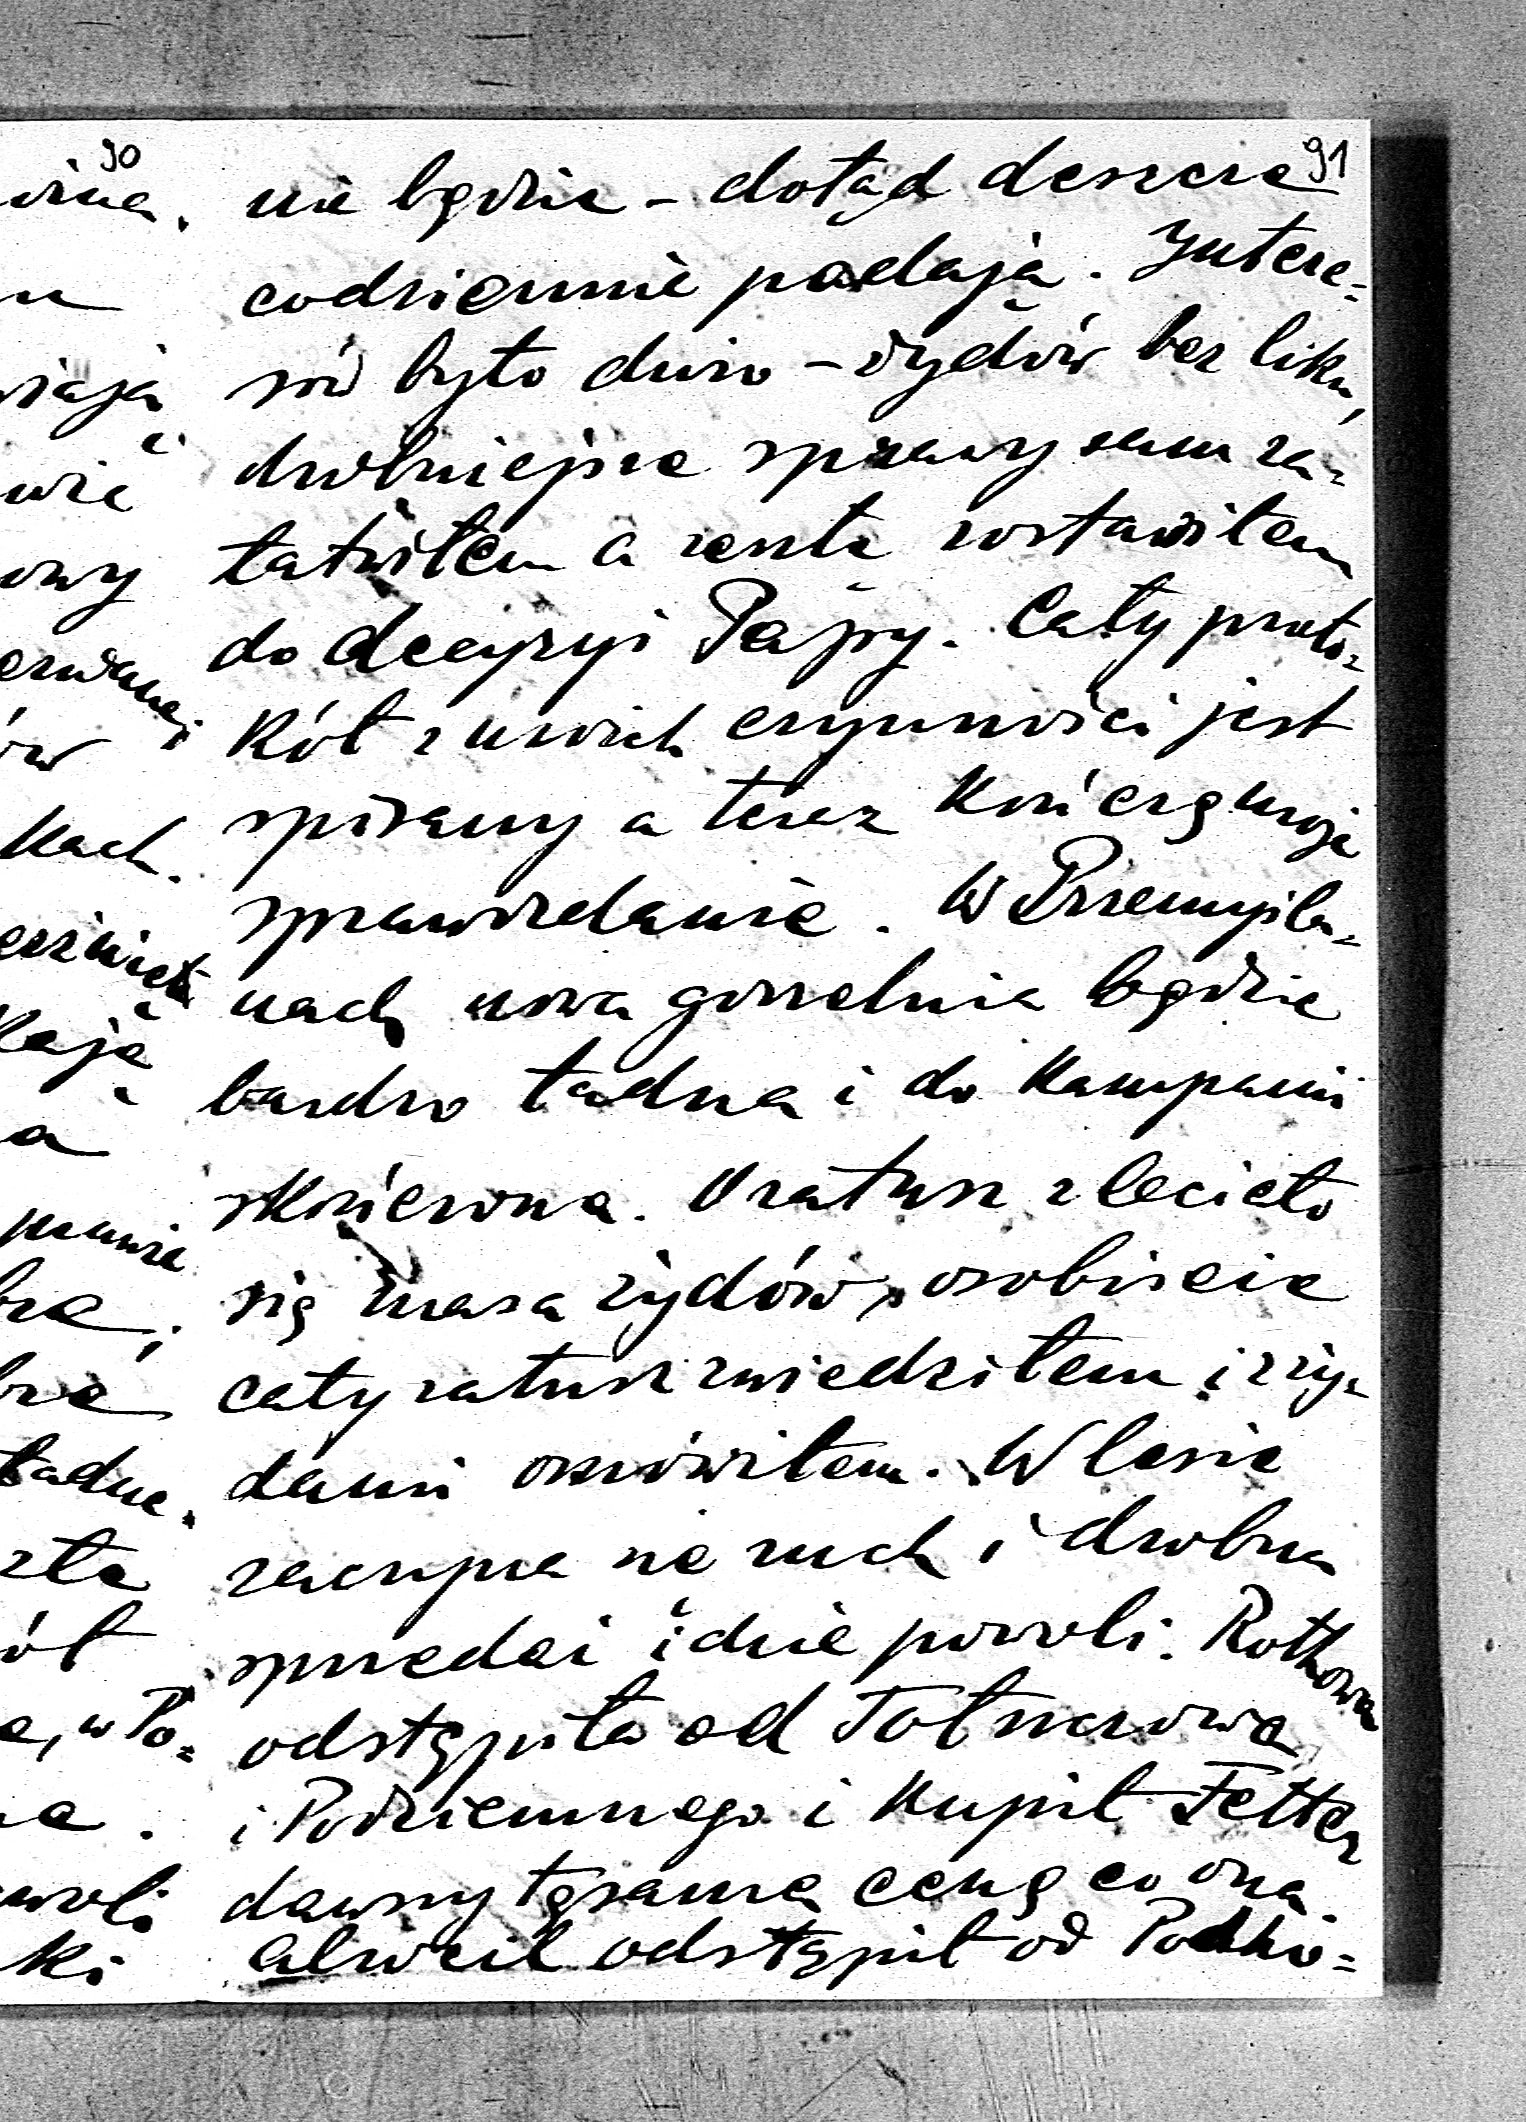 90
91
nie będzie – dotąd deszcze
codziennie padają. Intere-
sów było dużo – żydów bez liku,
drobniejsze sprawy sam za-
łatwiłem a resztę zostawiłem
do decyzyi Papy. Cały proto-
kół z moich czynności jest
spisany a teraz kończę moje
sprawozdanie. W Przemyśla-
nach nowa gorzelnia będzie
bardzo ładna i do kampanii
skończona. O ratusz zleciało
się masa żydów, osobiście
cały ratusz zwiedziłem i z ży-
dami omówiłem. W lesie
zaczyna się ruch i drobna
sprzedaż idzie powoli. Rothowa
odstąpiła od Tołszczowa
i Podziemnego i kupił Fetter
dawny tę samą cenę co ona
odstąpił od Podho-